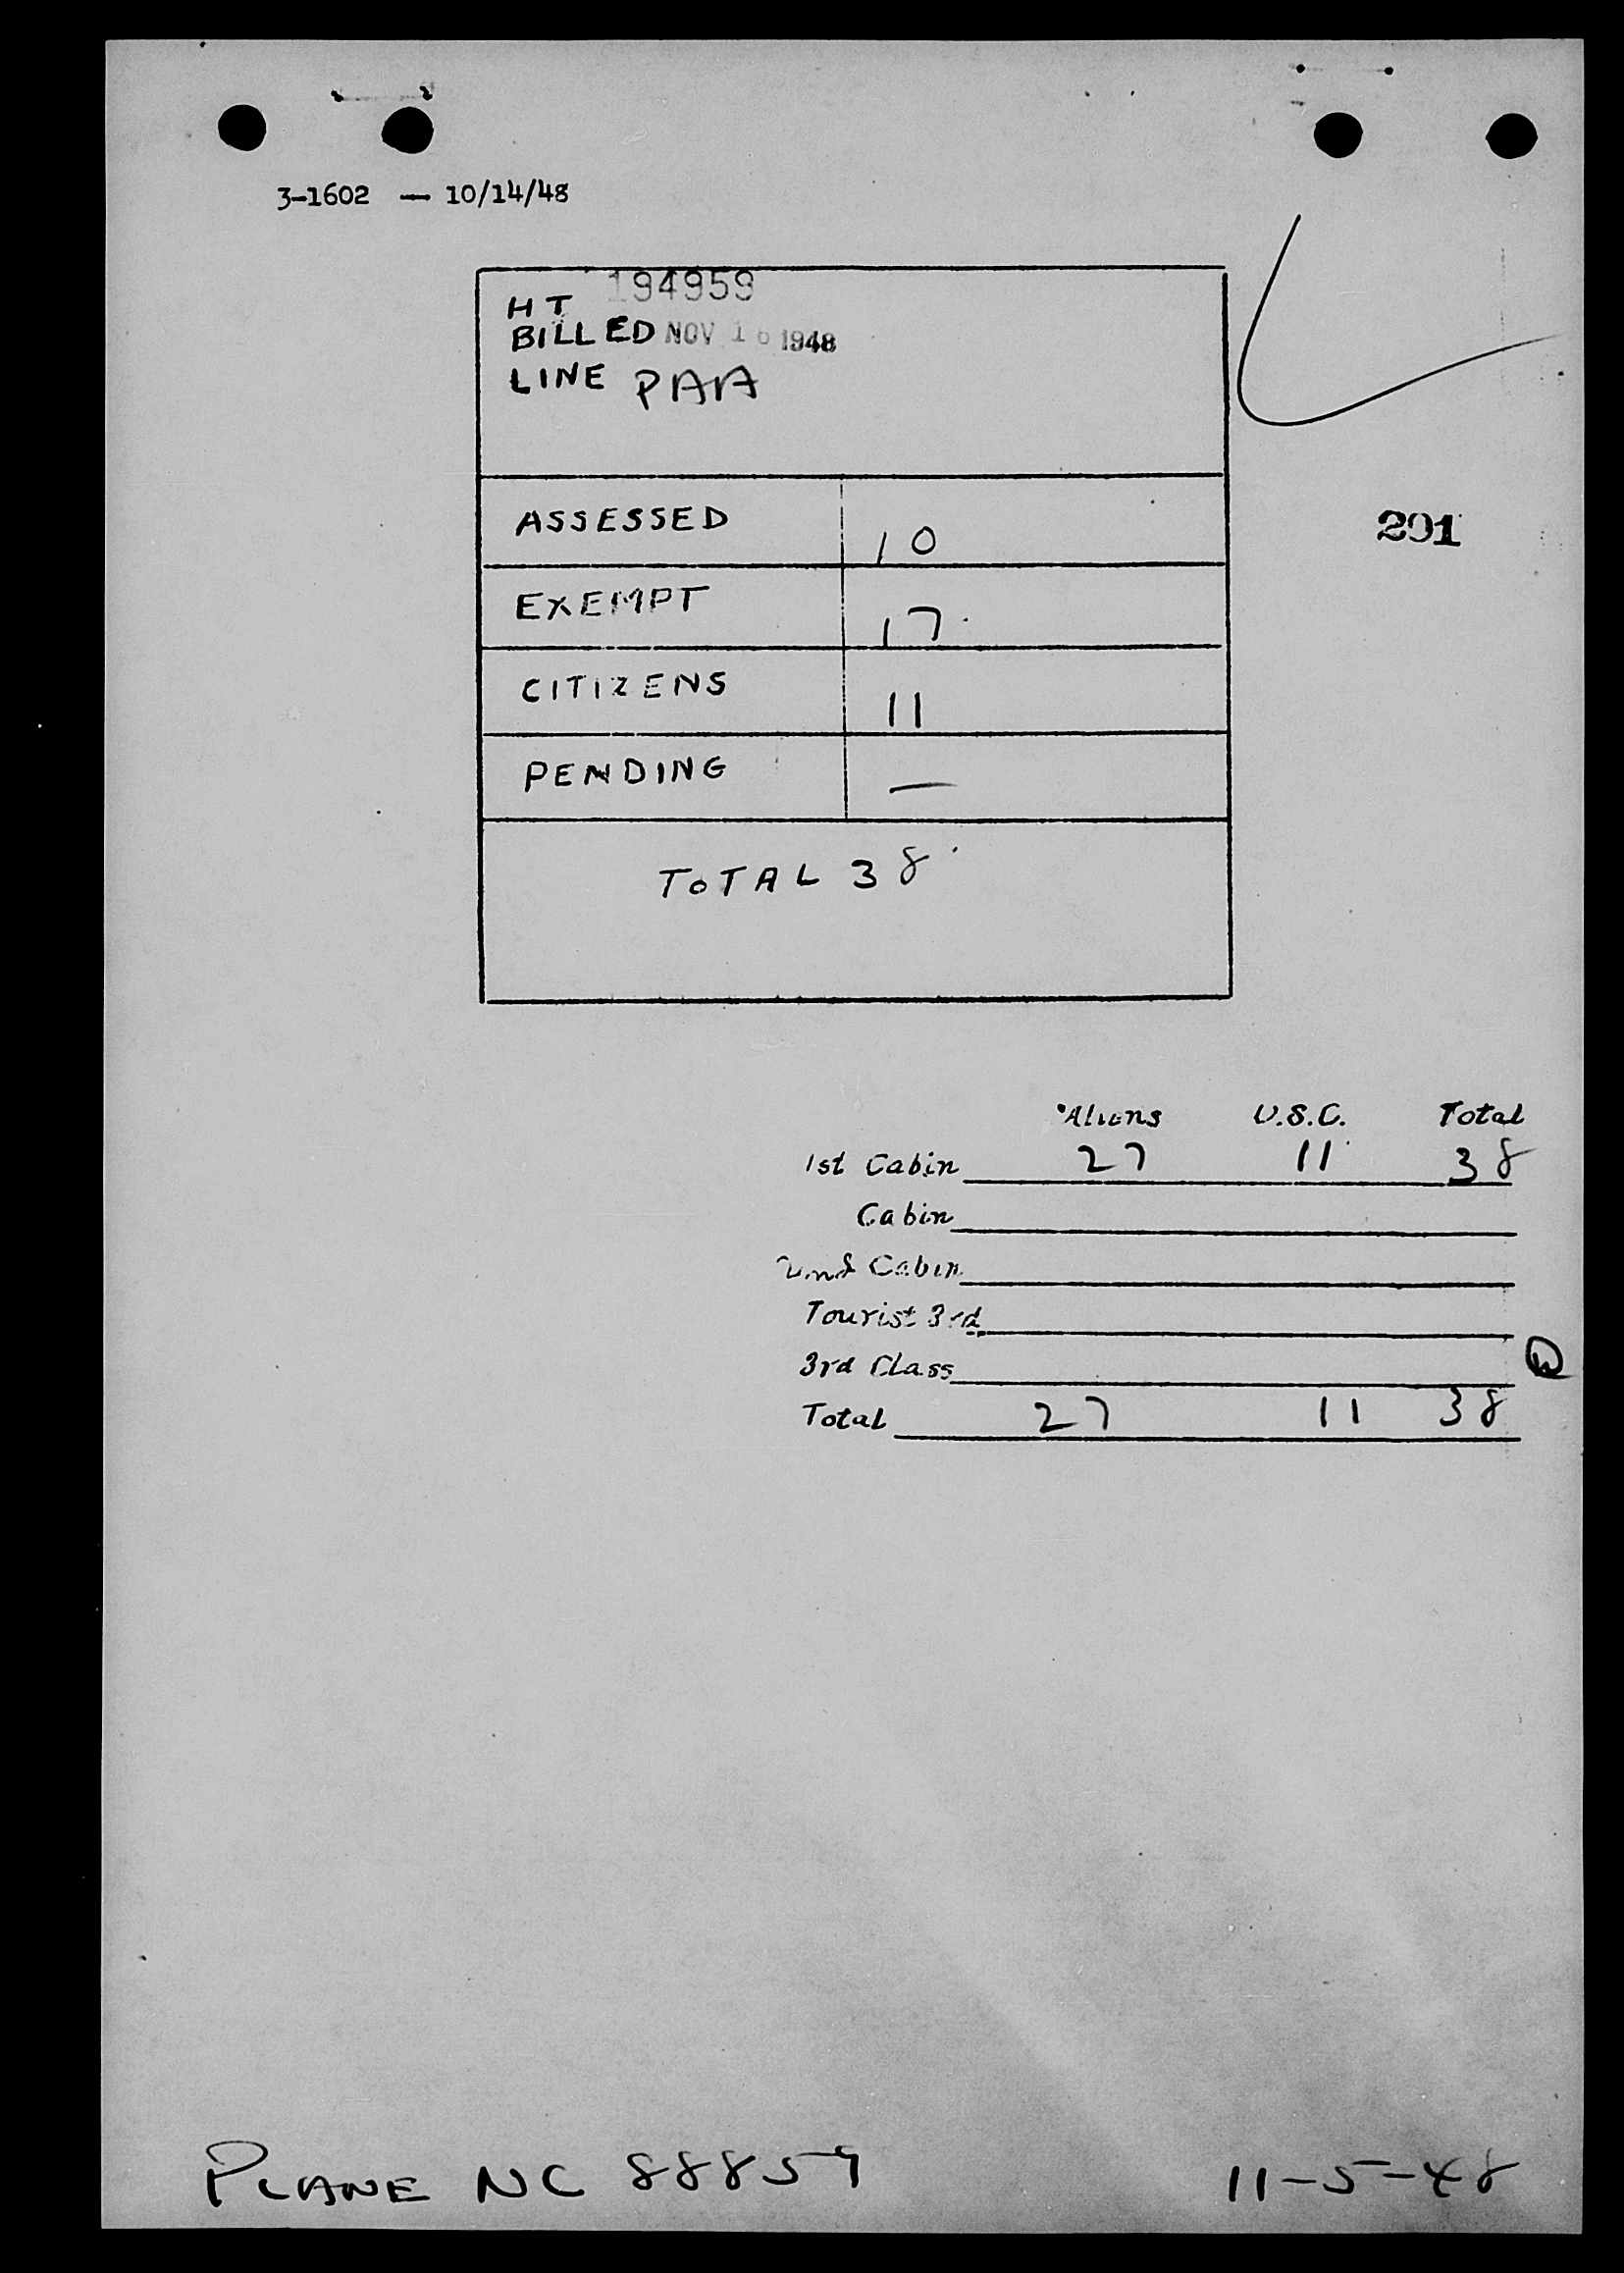 3-1602 — 10/14/48
194959
HT
BILLED NOV 16 1948
LINE PAA
ASSESSED 10
291
EXEMPT 17
CITIZENS 11
PENDING —
TOTAL 38
Aliens U.S.C. Total
1st Cabin 27 11 38
Cabin
2nd Cabin
Tourist 3rd
3rd Class
Total 27 11 38
PLANE NC 88859 11-5-48